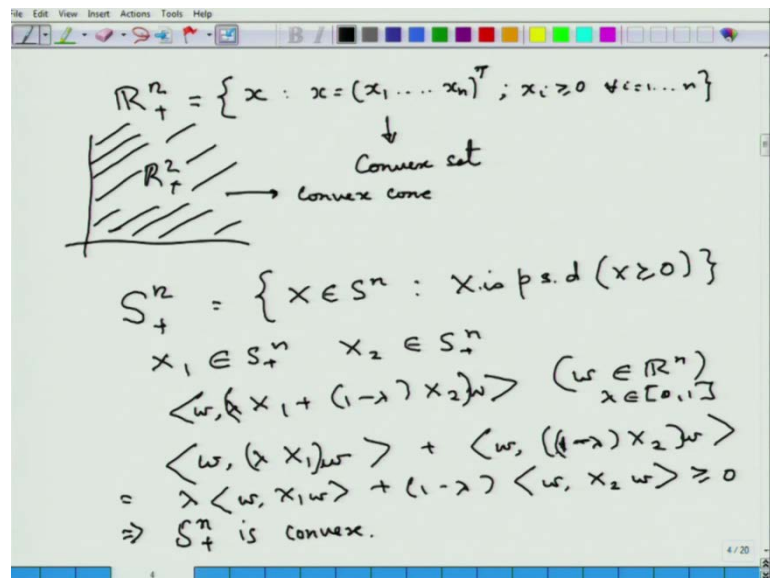 File Edit View Insert Actions Tools Help
B I
ℝⁿ₊ = { x : x = (x₁ .... xₙ)ᵀ ; xᵢ ≥ 0 ∀ i = 1 ... n }
↓
Convex set
ℝ²₊ → Convex cone
Sⁿ₊ = { X ∈ Sⁿ : X is p s.d (X ≥ 0) }
X₁ ∈ Sⁿ₊ X₂ ∈ Sⁿ₊
<w, (λ X₁ + (1-λ) X₂)w> (w ∈ ℝⁿ)
λ ∈ [0,1]
<w, (λ X₁)w> + <w, ((1-λ) X₂)w>
= λ <w, X₁w> + (1-λ) <w, X₂ w> ≥ 0
⇒ Sⁿ₊ is convex.
4 / 20
4